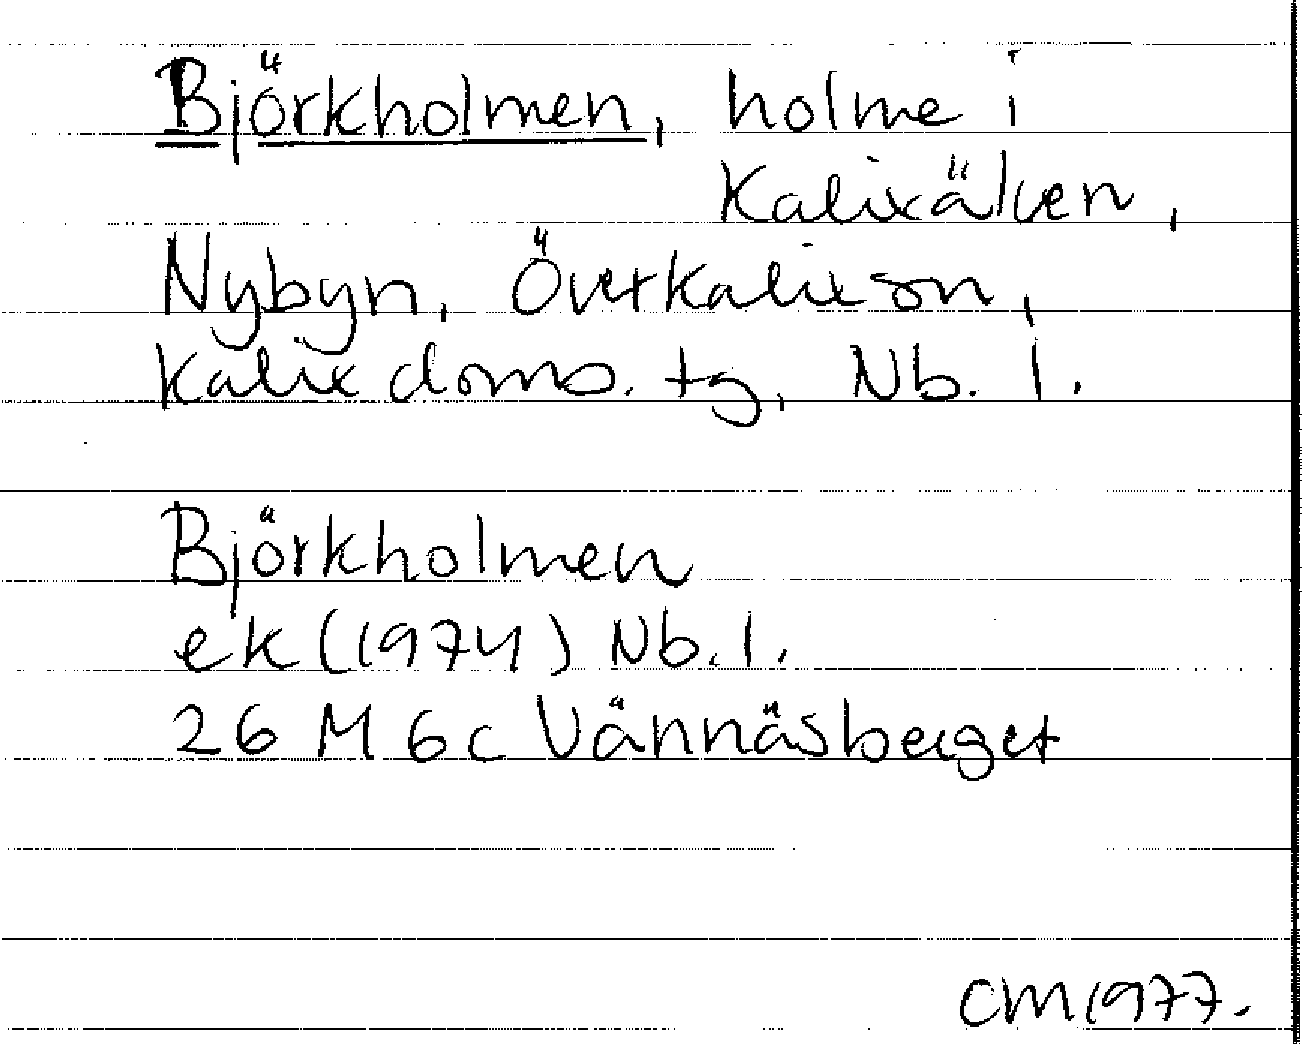 Björkholmen, holme i
Kalixälven,
Nybyn, Överkalix sn,
Kalix doms. tg, Nb. l.
Björkholmen
ek (1974) Nb. l.
26 M 6c Vännäsberget
CM 1977.